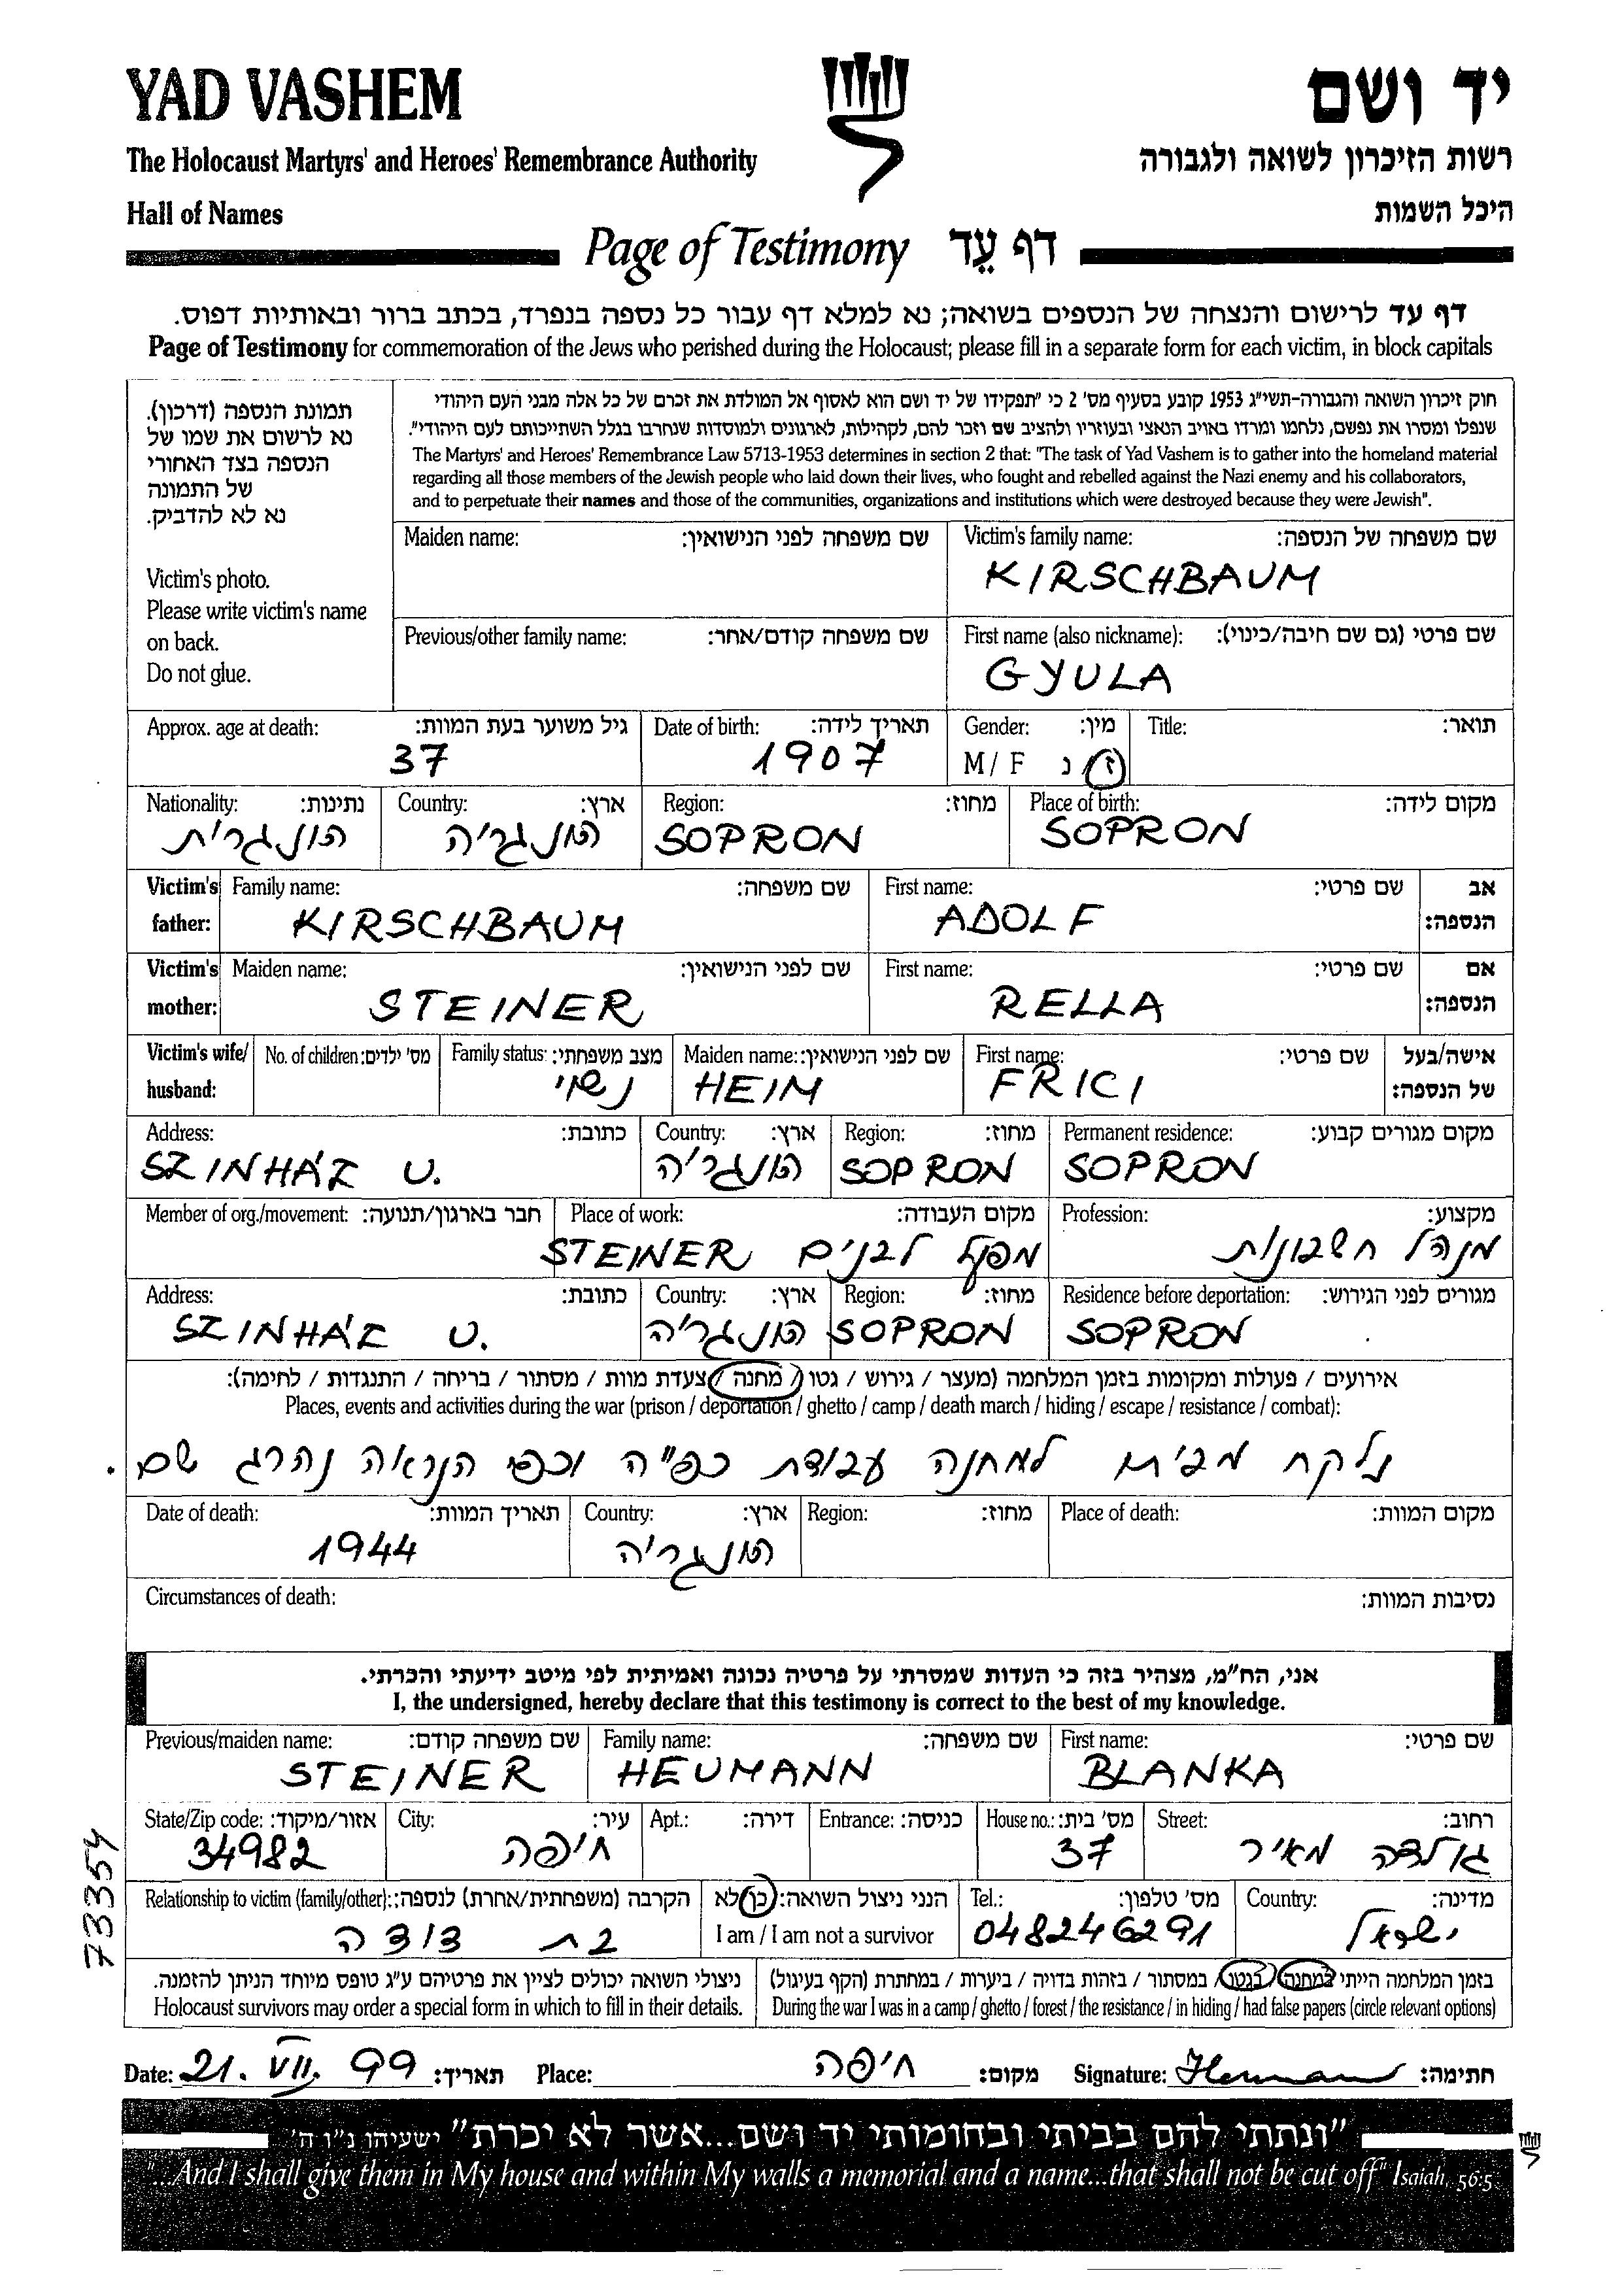 YAD VASHEM
יד ושם
The Holocaust Martyrs' and Heroes' Remembrance Authority
רשות הזיכרון לשואה ולגבורה
Hall of Names
היכל השמות
Page of Testimony דף עֵד
דף עד לרישום והנצחה של הנספים בשואה; נא למלא דף עבור כל נספה בנפרד, בכתב ברור ובאותיות דפוס.
Page of Testimony for commemoration of the Jews who perished during the Holocaust; please fill in a separate form for each victim, in block capitals
תמונת הנספה (דרכון).
נא לרשום את שמו של
הנספה בצד האחורי
של התמונה
נא לא להדביק.
Victim's photo.
Please write victim's name
on back.
Do not glue.
חוק זיכרון השואה והגבורה-תשי"ג 1953 קובע בסעיף מס' 2 כי "תפקידו של יד ושם הוא לאסוף אל המולדת את זכרם של כל אלה מבני העם היהודי
שנפלו ומסרו את נפשם, נלחמו ומרדו באויב הנאצי ובעוזריו ולהציב שם וזכר להם, לקהילות, לארגונים ולמוסדות שנחרבו בגלל השתייכותם לעם היהודי".
The Martyrs' and Heroes' Remembrance Law 5713-1953 determines in section 2 that: "The task of Yad Vashem is to gather into the homeland material
regarding all those members of the Jewish people who laid down their lives, who fought and rebelled against the Nazi enemy and his collaborators,
and to perpetuate their names and those of the communities, organizations and institutions which were destroyed because they were Jewish".
Maiden name: שם משפחה לפני הנישואין: Victim's family name: שם משפחה של הנספה:
KIRSCHBAUM
Previous/other family name: שם משפחה קודם/אחר: First name (also nickname): שם פרטי (גם שם חיבה/כינוי):
GYULA
Approx. age at death: גיל משוער בעת המוות: Date of birth: תאריך לידה: Gender: מין: Title: תואר:
37 1907 M / F ז נ
Nationality: נתינות: Country: ארץ: Region: מחוז: Place of birth: מקום לידה:
הונגרית הונגריה SOPRON SOPRON
Victim's father: Family name: שם משפחה: First name: שם פרטי: אב הנספה:
KIRSCHBAUM ADOLF
Victim's mother: Maiden name: שם לפני הנישואין: First name: שם פרטי: אם הנספה:
STEINER RELLA
Victim's wife/ husband: No. of children: מס' ילדים: Family status: מצב משפחתי: Maiden name: שם לפני הנישואין: First name: שם פרטי: אישה/בעל של הנספה:
נשוי HEIM FRICI
Address: כתובת: Country: ארץ: Region: מחוז: Permanent residence: מקום מגורים קבוע:
SZINHÁZ U. הונגריה SOPRON SOPRON
Member of org./movement: חבר בארגון/תנועה: Place of work: מקום העבודה: Profession: מקצוע:
מפעל לבנים STEINER מנהל חשבונות
Address: כתובת: Country: ארץ: Region: מחוז: Residence before deportation: מגורים לפני הגירוש:
SZINHÁZ U. הונגריה SOPRON SOPRON
אירועים / פעולות ומקומות בזמן המלחמה (מעצר / גירוש / גטו / מחנה / צעדת מוות / מסתור / בריחה / התנגדות / לחימה):
Places, events and activities during the war (prison / deportation / ghetto / camp / death march / hiding / escape / resistance / combat):
נלקח מבית למחנה עבודת כפ"ה וכפי הנראה נהרג שם.
Date of death: תאריך המוות: Country: ארץ: Region: מחוז: Place of death: מקום המוות:
1944 הונגריה
Circumstances of death: נסיבות המוות:
אני, הח"מ, מצהיר בזה כי העדות שמסרתי על פרטיה נכונה ואמיתית לפי מיטב ידיעתי והכרתי.
I, the undersigned, hereby declare that this testimony is correct to the best of my knowledge.
Previous/maiden name: שם משפחה קודם: Family name: שם משפחה: First name: שם פרטי:
STEINER HEUMANN BLANKA
State/Zip code: אזור/מיקוד: City: עיר: Apt.: דירה: Entrance: כניסה: House no.: מס' בית: Street: רחוב:
34982 חיפה 37 גולדה מאיר
Relationship to victim (family/other): הקרבה (משפחתית/אחרת) לנספה: הנני ניצול השואה: כן לא Tel.: מס' טלפון: Country: מדינה:
בת דודה I am / I am not a survivor 048246291 ישראל
73354
ניצולי השואה יכולים לציין את פרטיהם ע"ג טופס מיוחד הניתן להזמנה. בזמן המלחמה הייתי במחנה / בגטו / במסתור / בזהות בדויה / ביערות / במחתרת (הקף בעיגול)
Holocaust survivors may order a special form in which to fill in their details. During the war I was in a camp / ghetto / forest / the resistance / in hiding / had false papers (circle relevant options)
Date: 21. VII. 99 תאריך: Place: חיפה מקום: Signature: חתימה:
"ונתתי להם בביתי ובחומותי יד ושם...אשר לא יכרת" ישעיהו נ"ו ה'
"...And I shall give them in My house and within My walls a memorial and a name...that shall not be cut off" Isaiah, 56:5